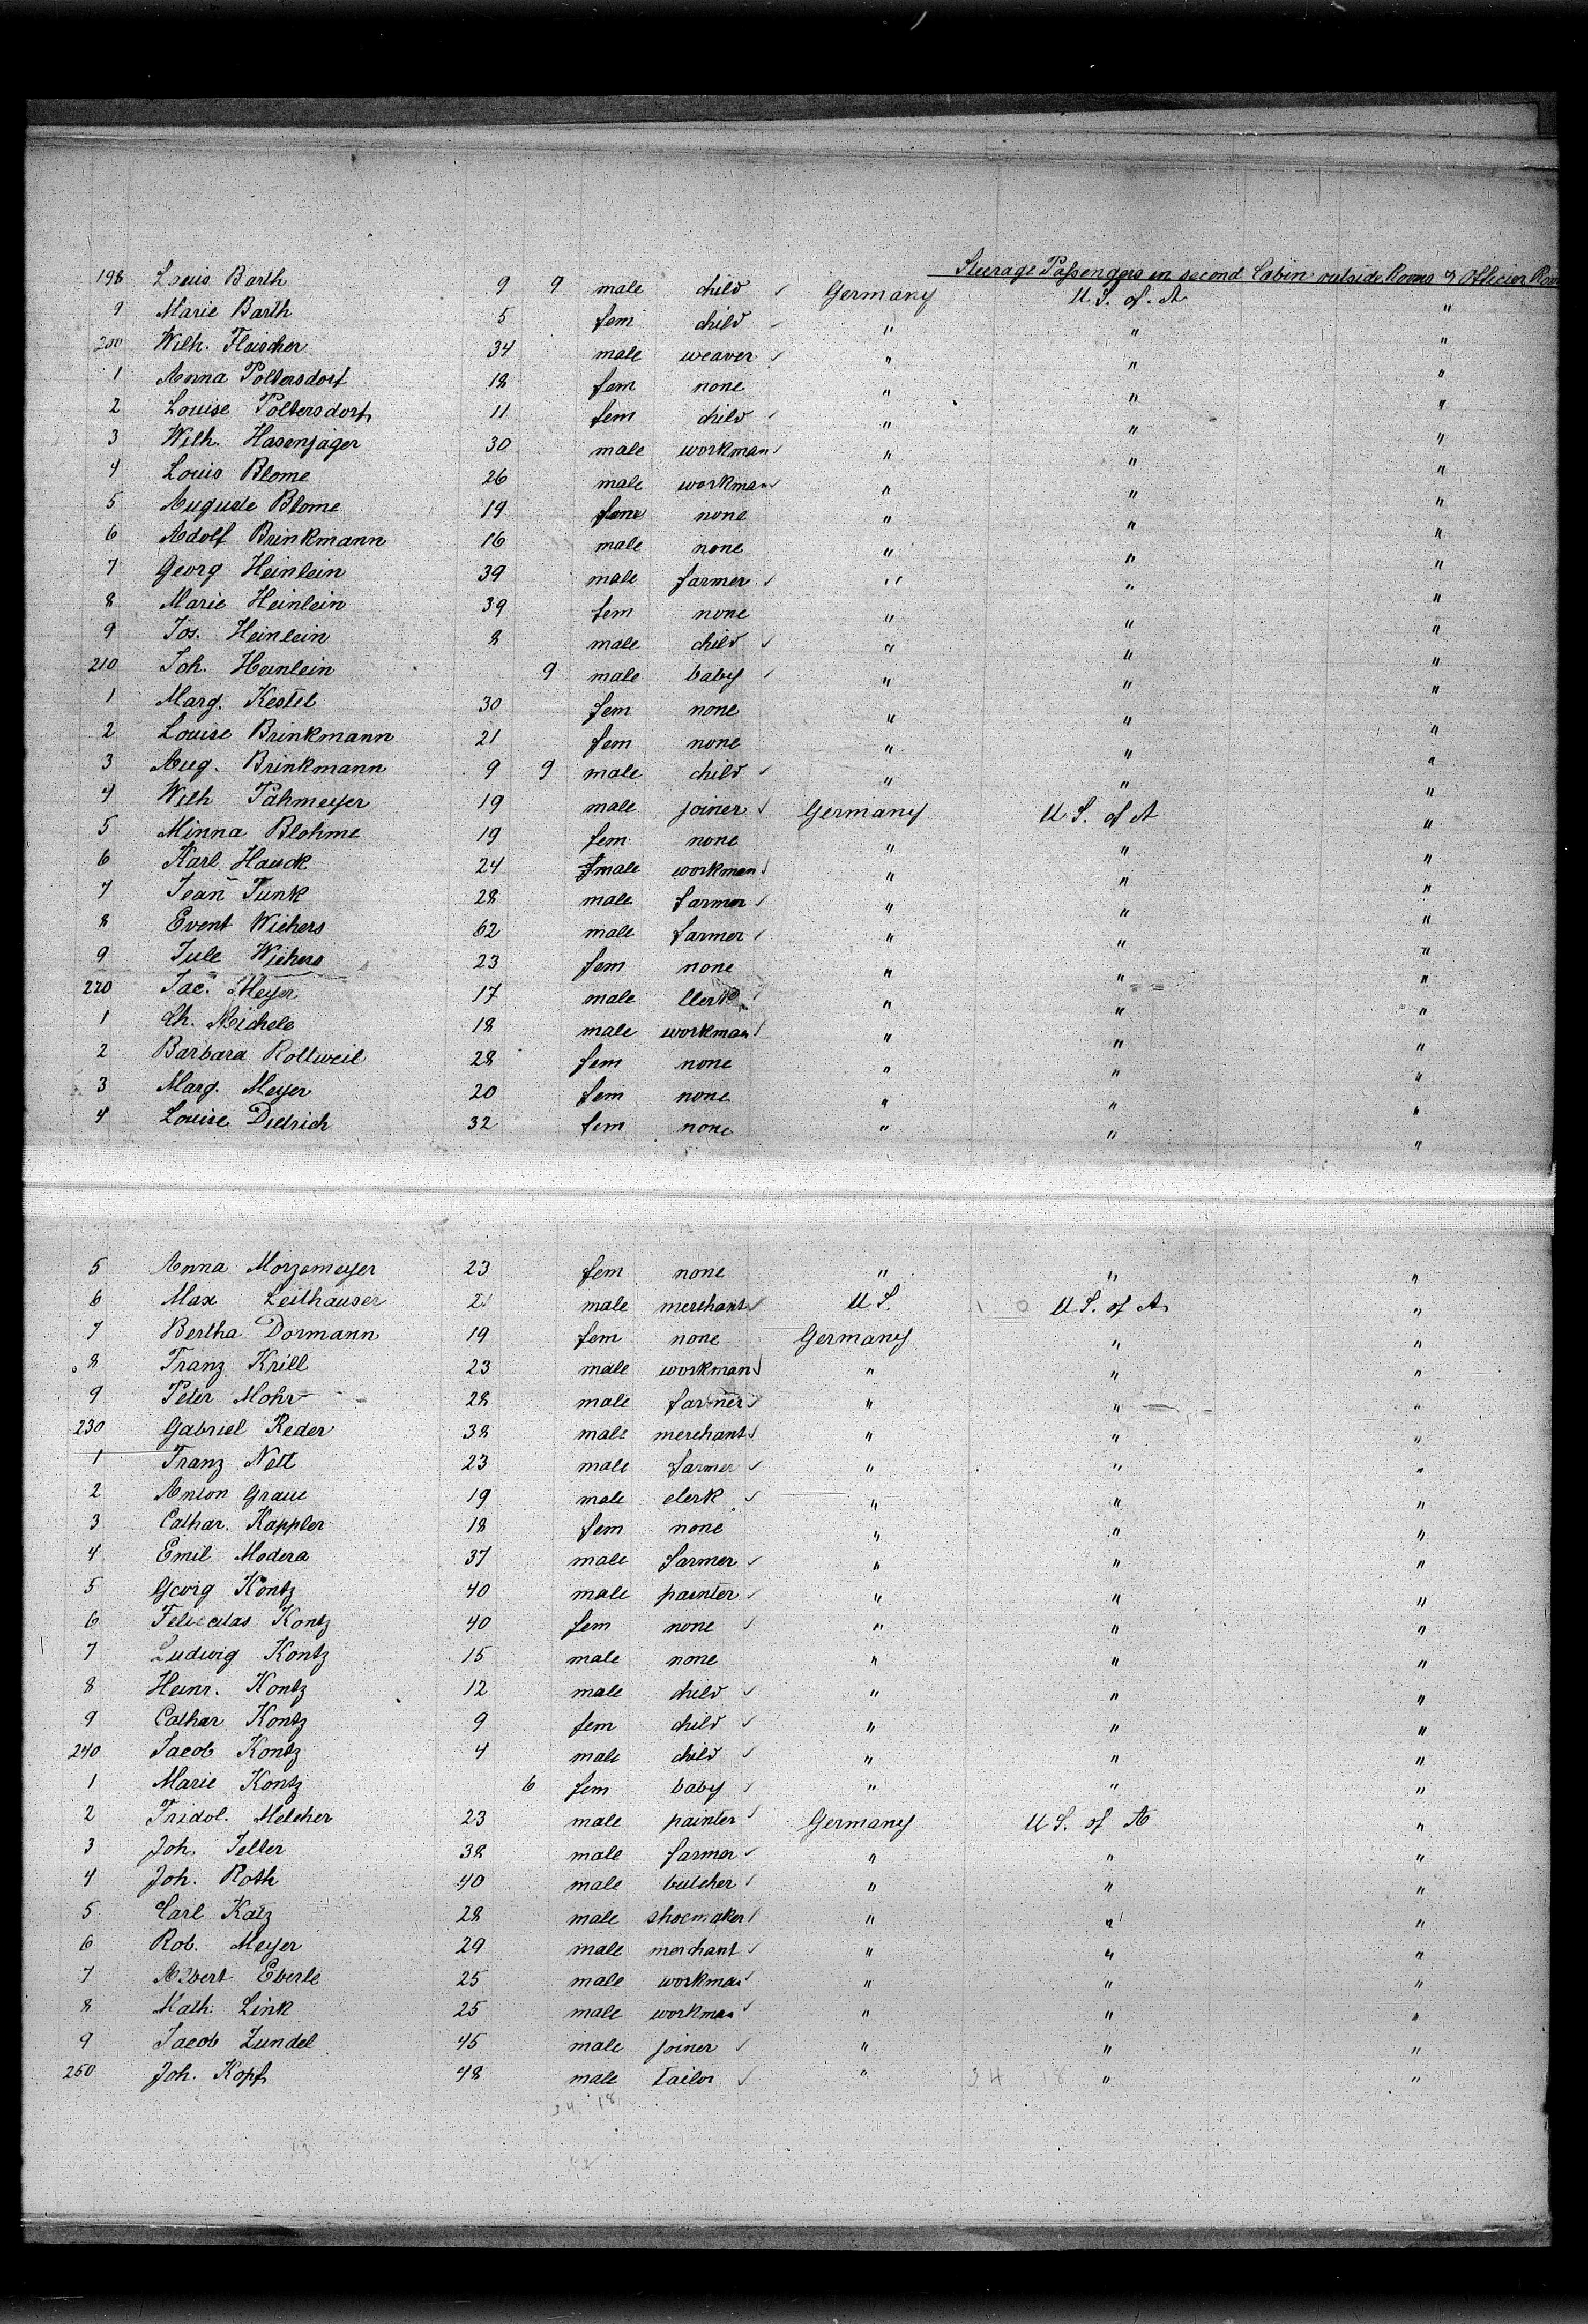 Steerage Passengers in second Cabin outside Rooms & Officier
198 Louis Barth 9 9 male child ✓ Germany U S. of. A "
9 Marie Barth 5 fem child ✓ " " "
200 Wilh. Fleischer 34 male weaver ✓ " " "
1 Anna Poltersdorf 18 fem none " " "
2 Louise Poltersdorf 11 fem child ✓ " " "
3 Wilh. Hasenjäger 30 male workman ✓ " " "
4 Louis Blome 26 male workman ✓ " " "
5 Auguste Blome 19 fem none " " "
6 Adolf Brinkmann 16 male none " " "
7 Georg Heinlein 39 male farmer ✓ " " "
8 Marie Heinlein 39 fem none " " "
9 Jos. Heinlein 8 male child ✓ " " "
210 Joh. Heinlein 9 male baby ✓ " " "
1 Marg. Kestel 30 fem none " " "
2 Louise Brinkmann 21 fem none " " "
3 Aug. Brinkmann 9 9 male child ✓ " " "
4 Wilh Pahmeyer 19 male joiner ✓ Germany U S. of A "
5 Minna Blohme 19 fem none " " "
6 Karl Hauck 24 male workman ✓ " " "
7 Jean Funk 28 male farmer ✓ " " "
8 Evert Wichers 62 male farmer ✓ " " "
9 Jule Wichers 23 fem none " " "
220 Jac. Meyer 17 male Clerk ✓ " " "
1 Ch. Michele 18 male workman ✓ " " "
2 Barbara Rottweil 28 fem none " " "
3 Marg. Meyer 20 fem none " " "
4 Louise Dietrich 32 fem none " " "
5 Anna Morzemeyer 23 fem none " " "
6 Max Leithauser male merchant ✓ U S. U S. of A "
7 Bertha Dormann 19 fem none Germany " "
8 Franz Krill 23 male workman ✓ " " "
9 Peter Mohr 28 male farmer ✓ " " "
230 Gabriel Reder 38 male merchant ✓ " " "
1 Franz Nett 23 male farmer ✓ " " "
2 Anton Graue 19 male clerk ✓ " " "
3 Cathar. Kappler 18 fem none " " "
4 Emil Modera 37 male farmer ✓ " " "
5 Georg Kontz 40 male painter ✓ " " "
6 Felicitas Kontz 40 fem none ✓ " " "
7 Ludwig Kontz 15 male none " " "
8 Heinr. Kontz 12 male child ✓ " " "
9 Cathar Kontz 9 fem child ✓ " " "
240 Jacob Kontz 4 male child ✓ " " "
1 Marie Kontz 6 fem baby ✓ " " "
2 Fridol. Melcher 23 male painter ✓ Germany U S. of A "
3 Joh. Jelter 38 male farmer ✓ " " "
4 Joh. Roth 40 male butcher ✓ " " "
5 Carl Katz 28 male shoemaker ✓ " " "
6 Rob. Meyer 29 male merchant ✓ " " "
7 Albert Eberle 25 male workman ✓ " " "
8 Math. Link 25 male workman ✓ " " "
9 Jacob Zundel 45 male joiner ✓ " " "
250 Joh. Kopf 48 male Tailor ✓ " 34 18 " "
34 18